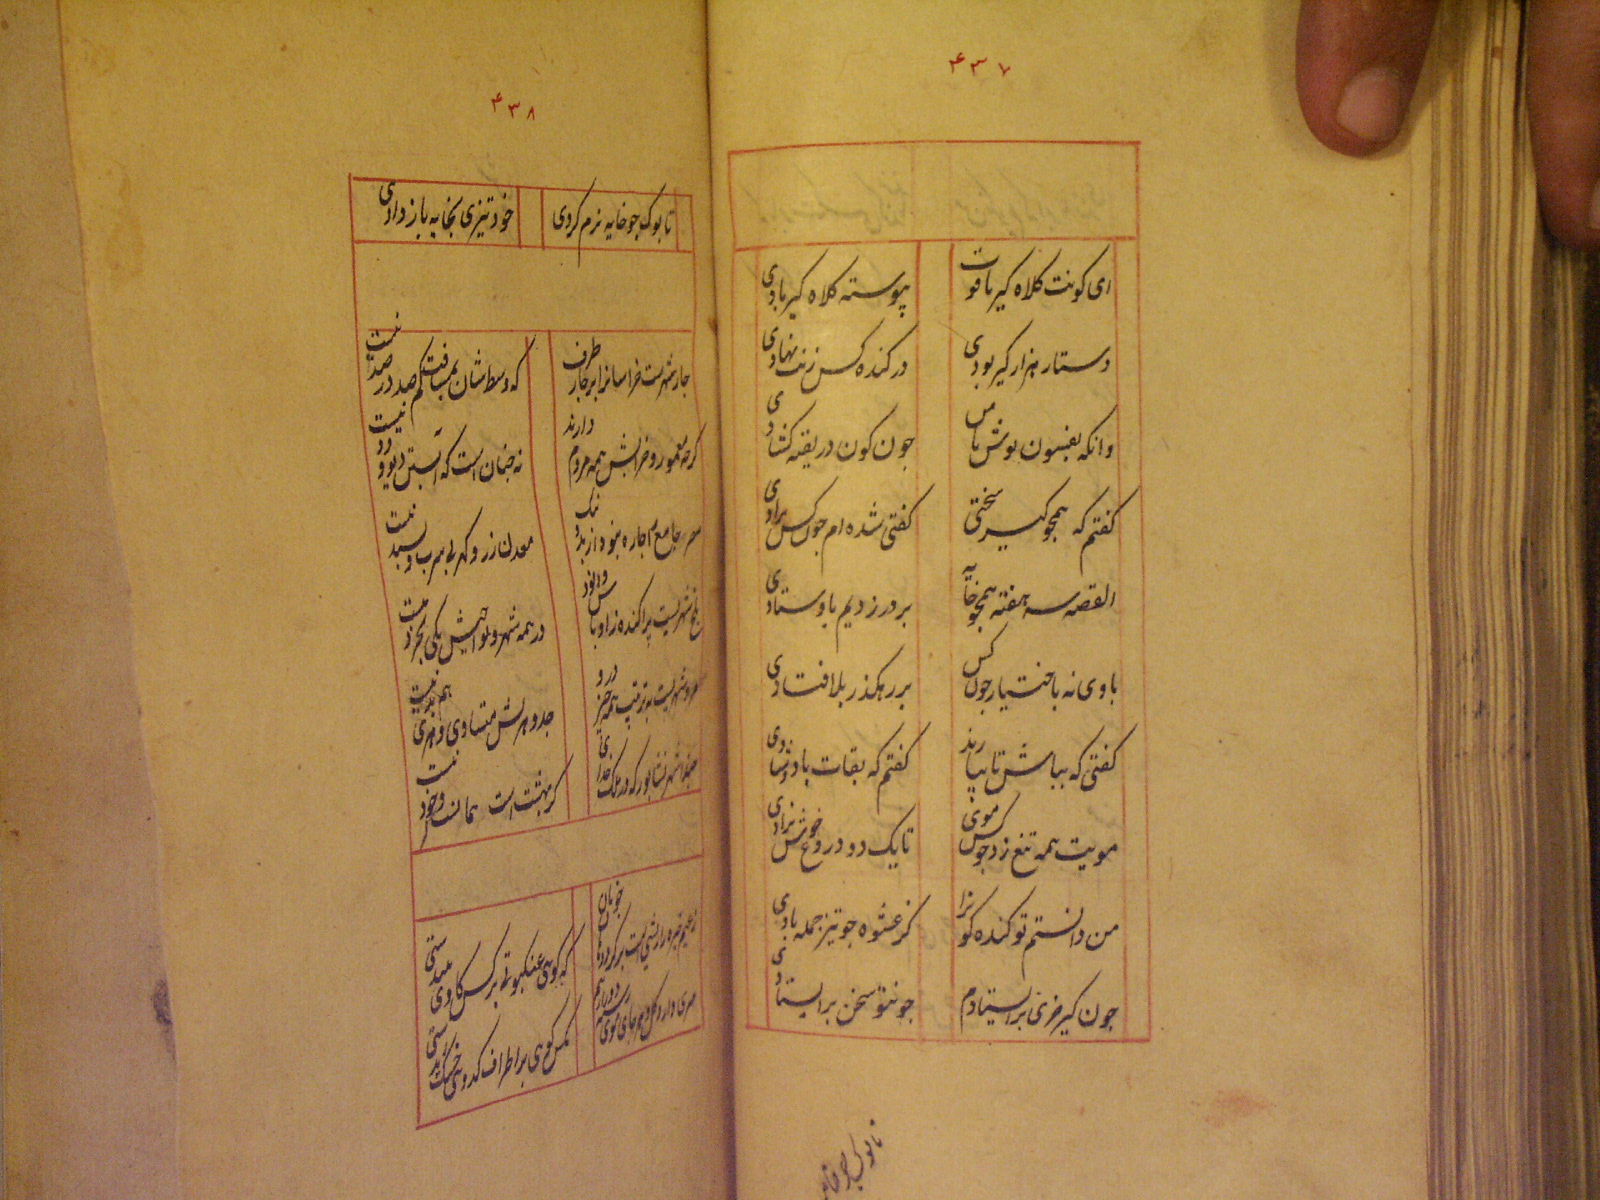 ۴۳۷
ای کونت کلاه کیر با قوت پیوسته کلاه کیر بادی
دستار هزار کیر بودی در کنده کس زنت نهادی
وانکه بفسون بوش جون کون در یقته کشادی
کفتم که همجو کیر سختی کفتی شده ام جون کس برادی
القصه سه هفته همجو خایه بر در زدیم با وستادی
با وی نه باختیار جون کس بر رهکذر بلا فتادی
کفتی که بباش تا بیارند کفتم که بقات باد و شادی
مویت همه تیغ زد جو کس موی تا یک دو دروغ خوش بزادی
من دانستم تو کنده کون را کز عشوه جو تیز جمله بادی
جون کیر خری بر ایستادم جو نتو سخن بر ایستادی
تا بوک جو خایه
۴۳۸
تا بوک جو خایه نرم کردی خود تیزی بخایه باز دادی
جار شهرست خراسانرا بر جار طرف که وسط شان بمسافت کم صد در صد نیست
کرجه معمور و خرابش همه مردم دارند نه جنان است که آبستن دیو و دد نیست
جامع را جاره نبود از بد و نیک معدن زر و کهر بی سرب و بسد نیست
بلخ شهریست براکنده ز اوباش و رنود در همه شهر و نواحیش یکی بخرد نیست
مرو شهریست به ترتیب همه جیز درو جد و هزلش متساوی و هری هم بد نیست
حبذا شهر نشابور که در ملک خدای کر بهشت است همانست و خود نیست
که کوهی عنکبوتی بر کس کاوی
سری دارد کل و هر جای موی مکس کوهی بر اطراف کدوی خشک ریدستی